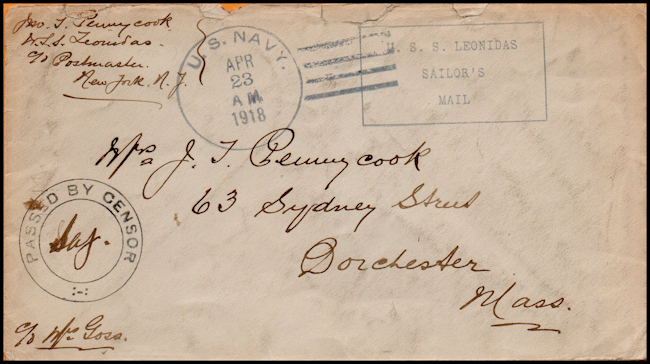 Jno. T. Pennycook
U.S.S. Leonidas.
c/o Postmaster.
New York. N.Y.
U.S. NAVY.
APR
23
A M
1918
U. S. S. LEONIDAS
SAILOR'S
MAIL
Mrs J. T. Pennycook
63 Sydney Street
Dorchester
Mass.
PASSED BY CENSOR
c/o Mrs Goss.